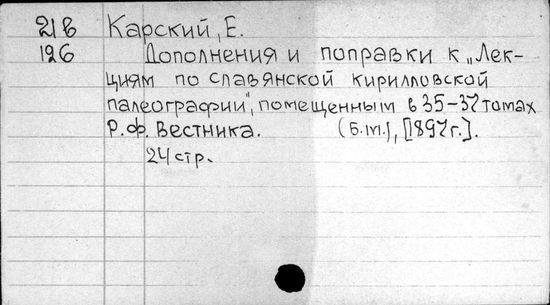 21в Карский, Е.
126 Дополнения и поправки к „Лек-
циям по славянской кирилловской
палеографии", помещенным в 35-37 томах
Р.ф. Вестника. (б.т.), [1897г.].
24 стр.